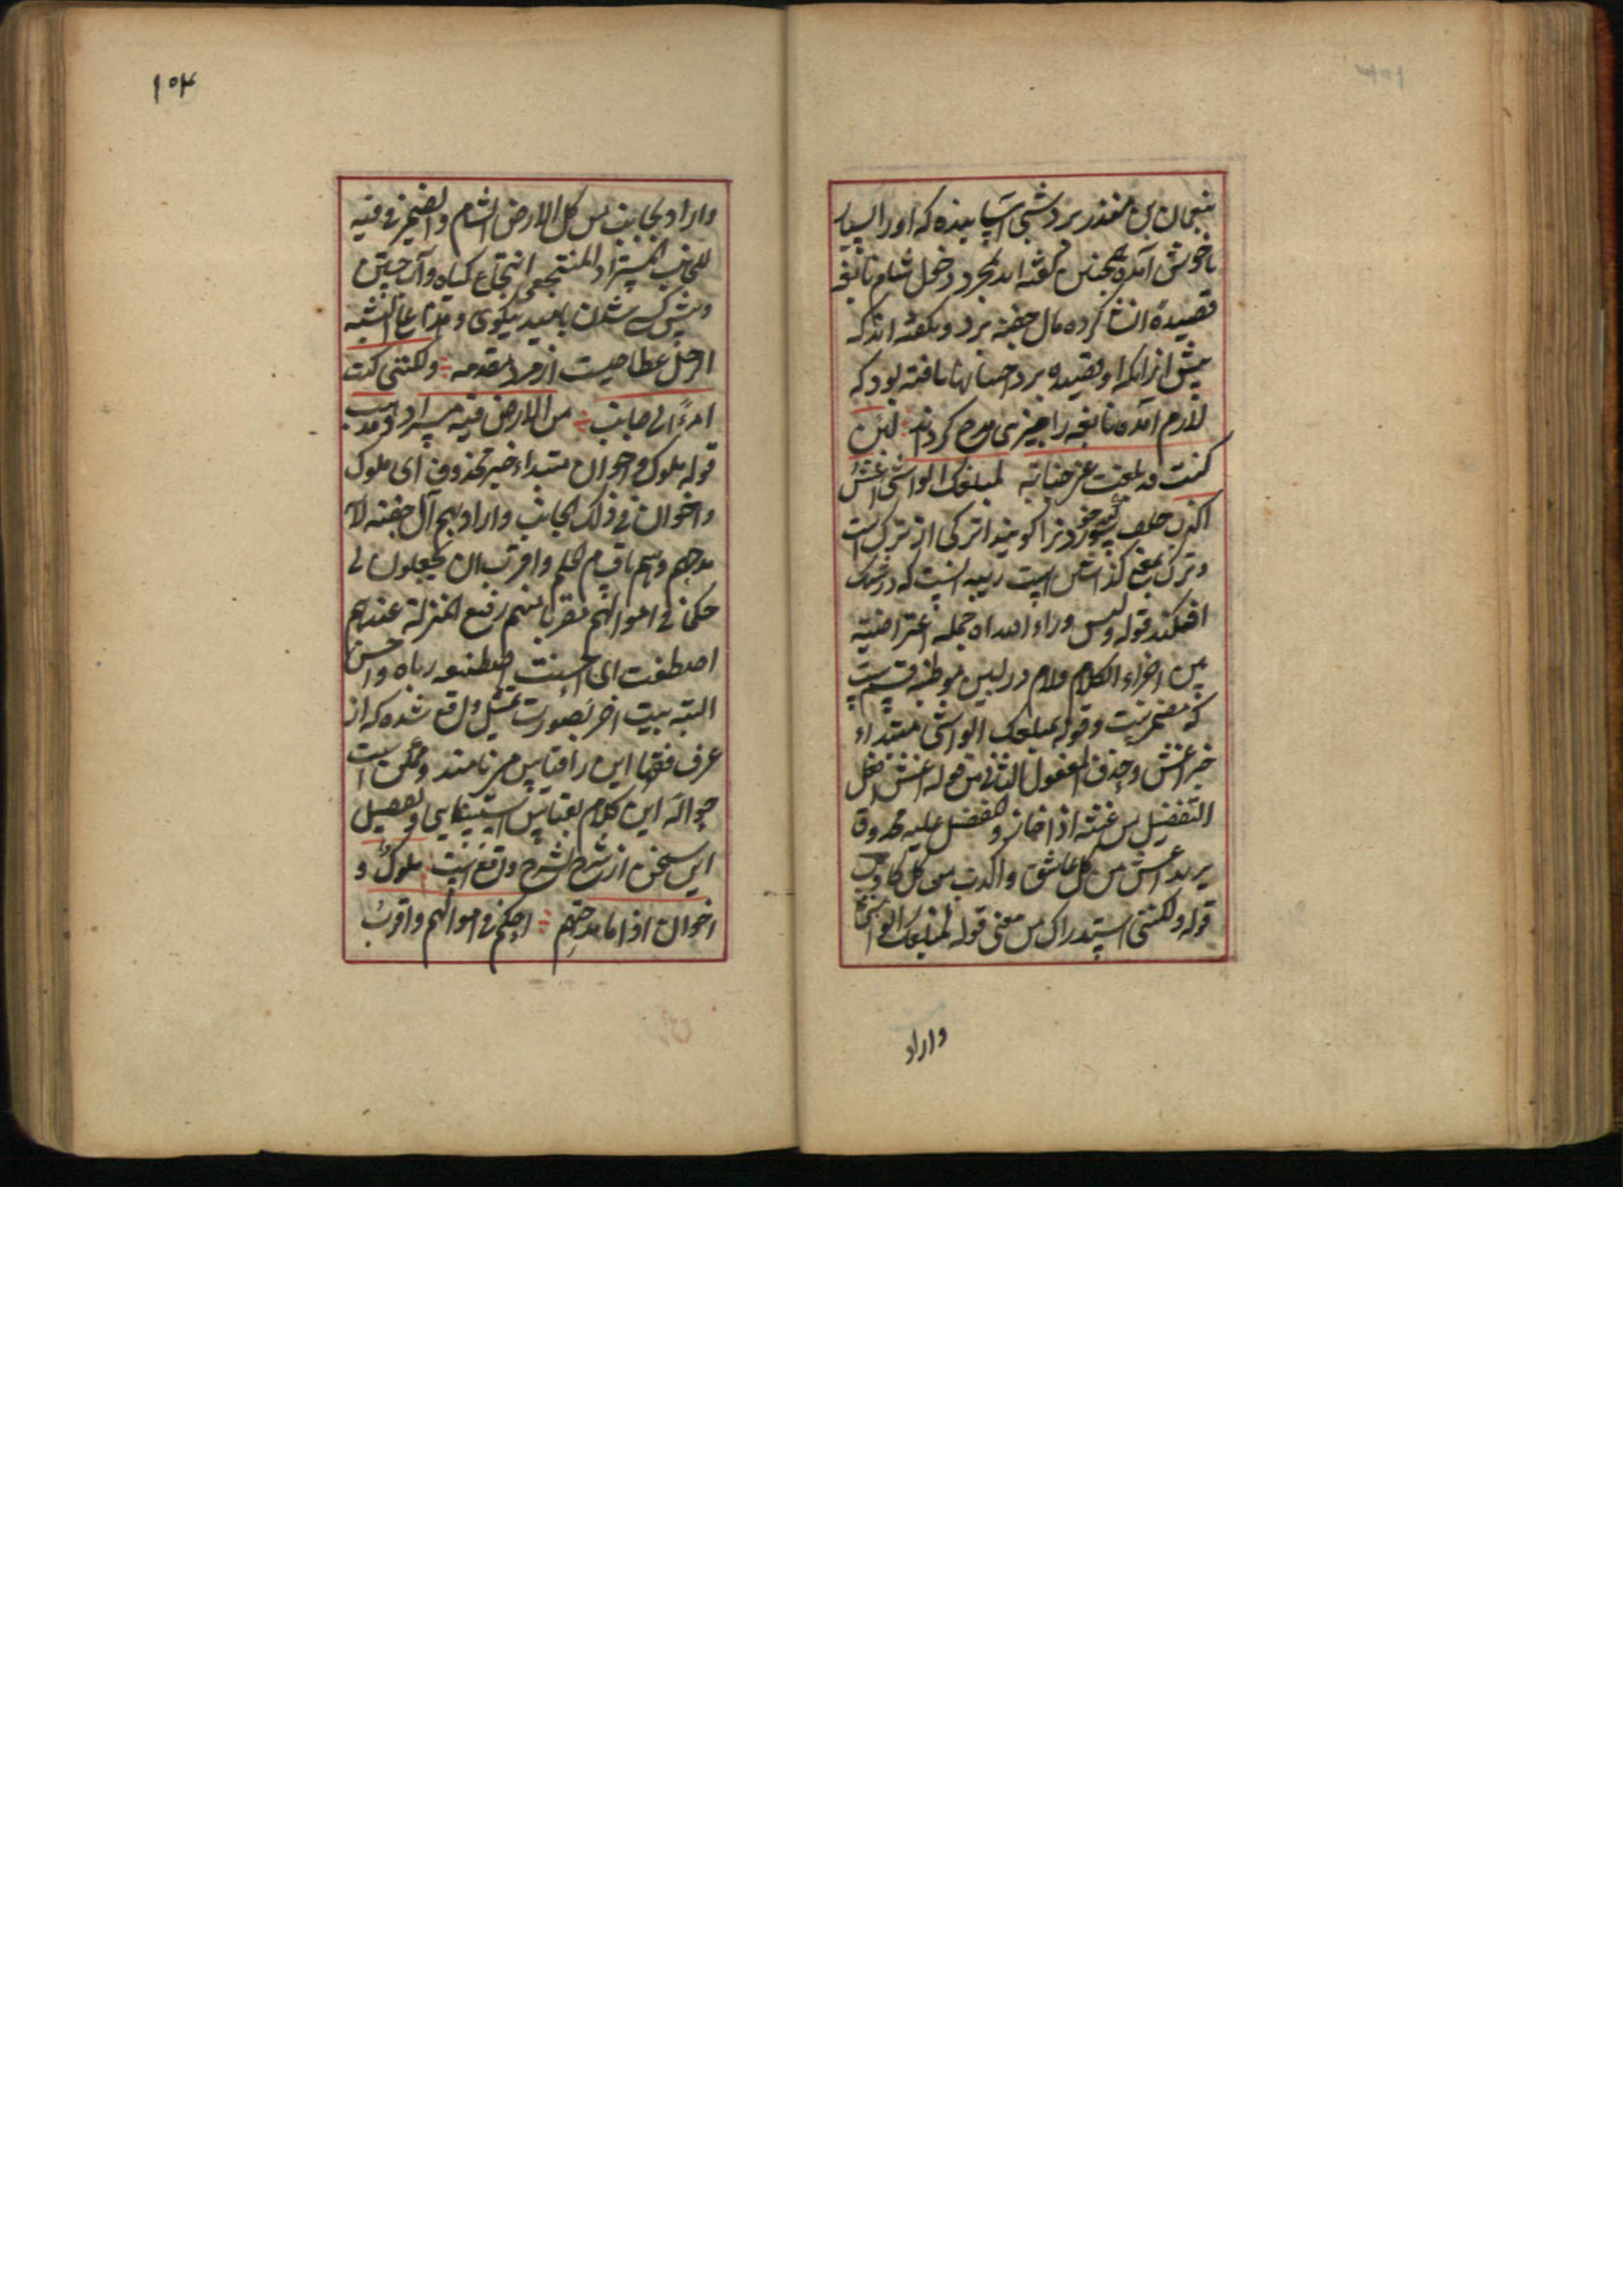 نعمان بن منذر برد شبی آسپا بیده که او را بسیار
ناخوش آمده همچنین گفته اند بمجرد دخول شام نابغه
قصیده انشا کرده بآل جفنه برد و بگفته اند که
پیش از آنکه او قصیده برد احسانها یافته بود که
لازم آمده نابغه را چیزی مدح کردند لئن
كنت قد بلغت عني خيانة لمبلغك الواشي اغش
اكذب حلف سوگند خوردنرا گویند اترکی از ترک است
و ترک بمعنی گذاشتن است ریبه آنست که در شک
افکند قوله وليس وراء الله اه جمله اعتراضیه
بين اجزاء الكلام ولام در لئن موطئه قسم ست
که مضمرست و قوله لمبلغك الواشي مبتداء
خبر اغش وحذف المفعول الثاني من قوله اغش افعل
التفضيل من غشه اذا خانه والمفضل عليه محذوف
يريد اغش من كل غاش واكذب من كل كاذب
قوله ولكنني استدراك من معنى قوله لمبلغك الواشي
واراد
١٠٣
واراد بجانب من كل الارض الشام والضمير في فيه
للجانب المستراد المنتجع انتجاع گیاه وآب جستن
و پیش کسی شدن بامید نیکویی
الرجل عطا جست از مرد مقدمه ولكنني كنت
امرءا لي جانب من الارض فيه مستراد ومذهب
قوله ملوك واخوان مبتداء خبره محذوف اي ملوك
واخوان في ذلك الجانب واراد بهم آل جفنه لانه
مدحهم وهم باقوام لهم واقرب ان يجعلون لي
حكما في اموالهم مقربا منهم رفيع المنزلة عندهم
اصطنعت اي احسنت اصطنعه رباه واحسن
البته بیت اخر بصورت تمثیل واقع شده که از
عرف فقها این را قیاس می نامند و ممکن است
حواله این کلام بقیاس استثنایی و تفصیل
این سخن از شرح لشرح واقع است ملوك و
اخوان اذا ما مدحتهم احكم في اموالهم واقرب